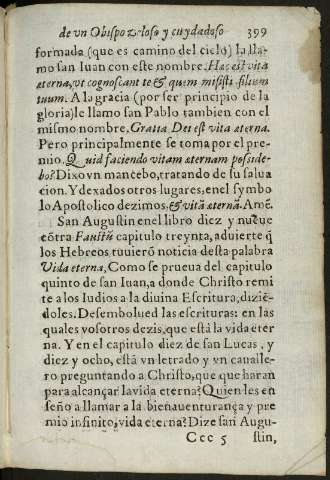 de vn Obispo zeloso y cuydadoso 399
formada (que es camino del cielo) la lla-
mo san Iuan con este nombre. Hæc est vita
æterna, vt cognoscant te & quem misisti filium
tuum. A la gracia (por ser principio de la
gloria) le llamo san Pablo tambien con el
mismo nombre. Gratia Dei est vita æterna.
Pero principalmente se toma por el pre-
mio. Quid faciendo vitam æternam posside-
bo? Dixo vn mancebo, tratando de su salua
cion. Y dexados otros lugares, en el symbo
lo Apostolico dezimos, & vitã æternã. Amẽ.
San Augustin en el libro diez y nueue
cõtra Faustũ capitulo treynta, aduierte q̃
los Hebreos tuuierõ noticia desta palabra
Vida eterna, Como se prueua del capitulo
quinto de san Iuan, a donde Christo remi
te a los Iudios a la diuina Escritura, diziẽ-
doles. Desembolued las escrituras: en las
quales vosotros dezis, que està la vida eter
na. Y en el capitulo diez de san Lucas, y
diez y ocho, està vn letrado y vn cauàlle-
ro preguntando a Christo, que que haran
para alcançar la vida eterna? Quien les en
seño a llamar a la bienauenturança y pre
mio infinito, vida eterna? Dize san Augu-
Ccc 5 stin,